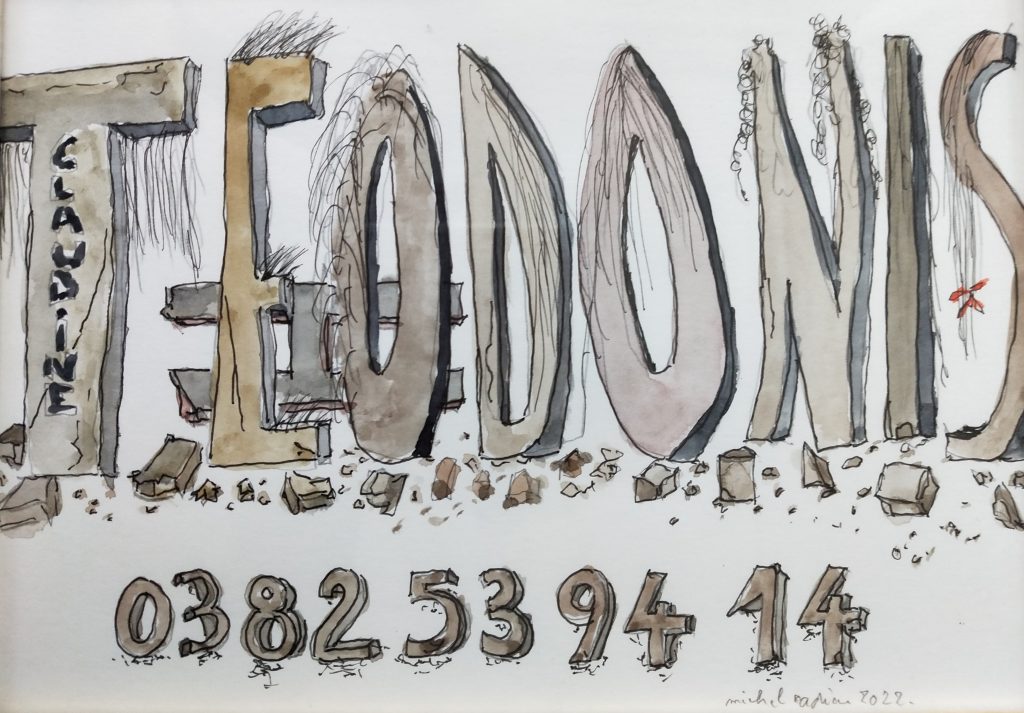 TEODONIS
CLAUDINE
0382 53 94 14
michel 2022.